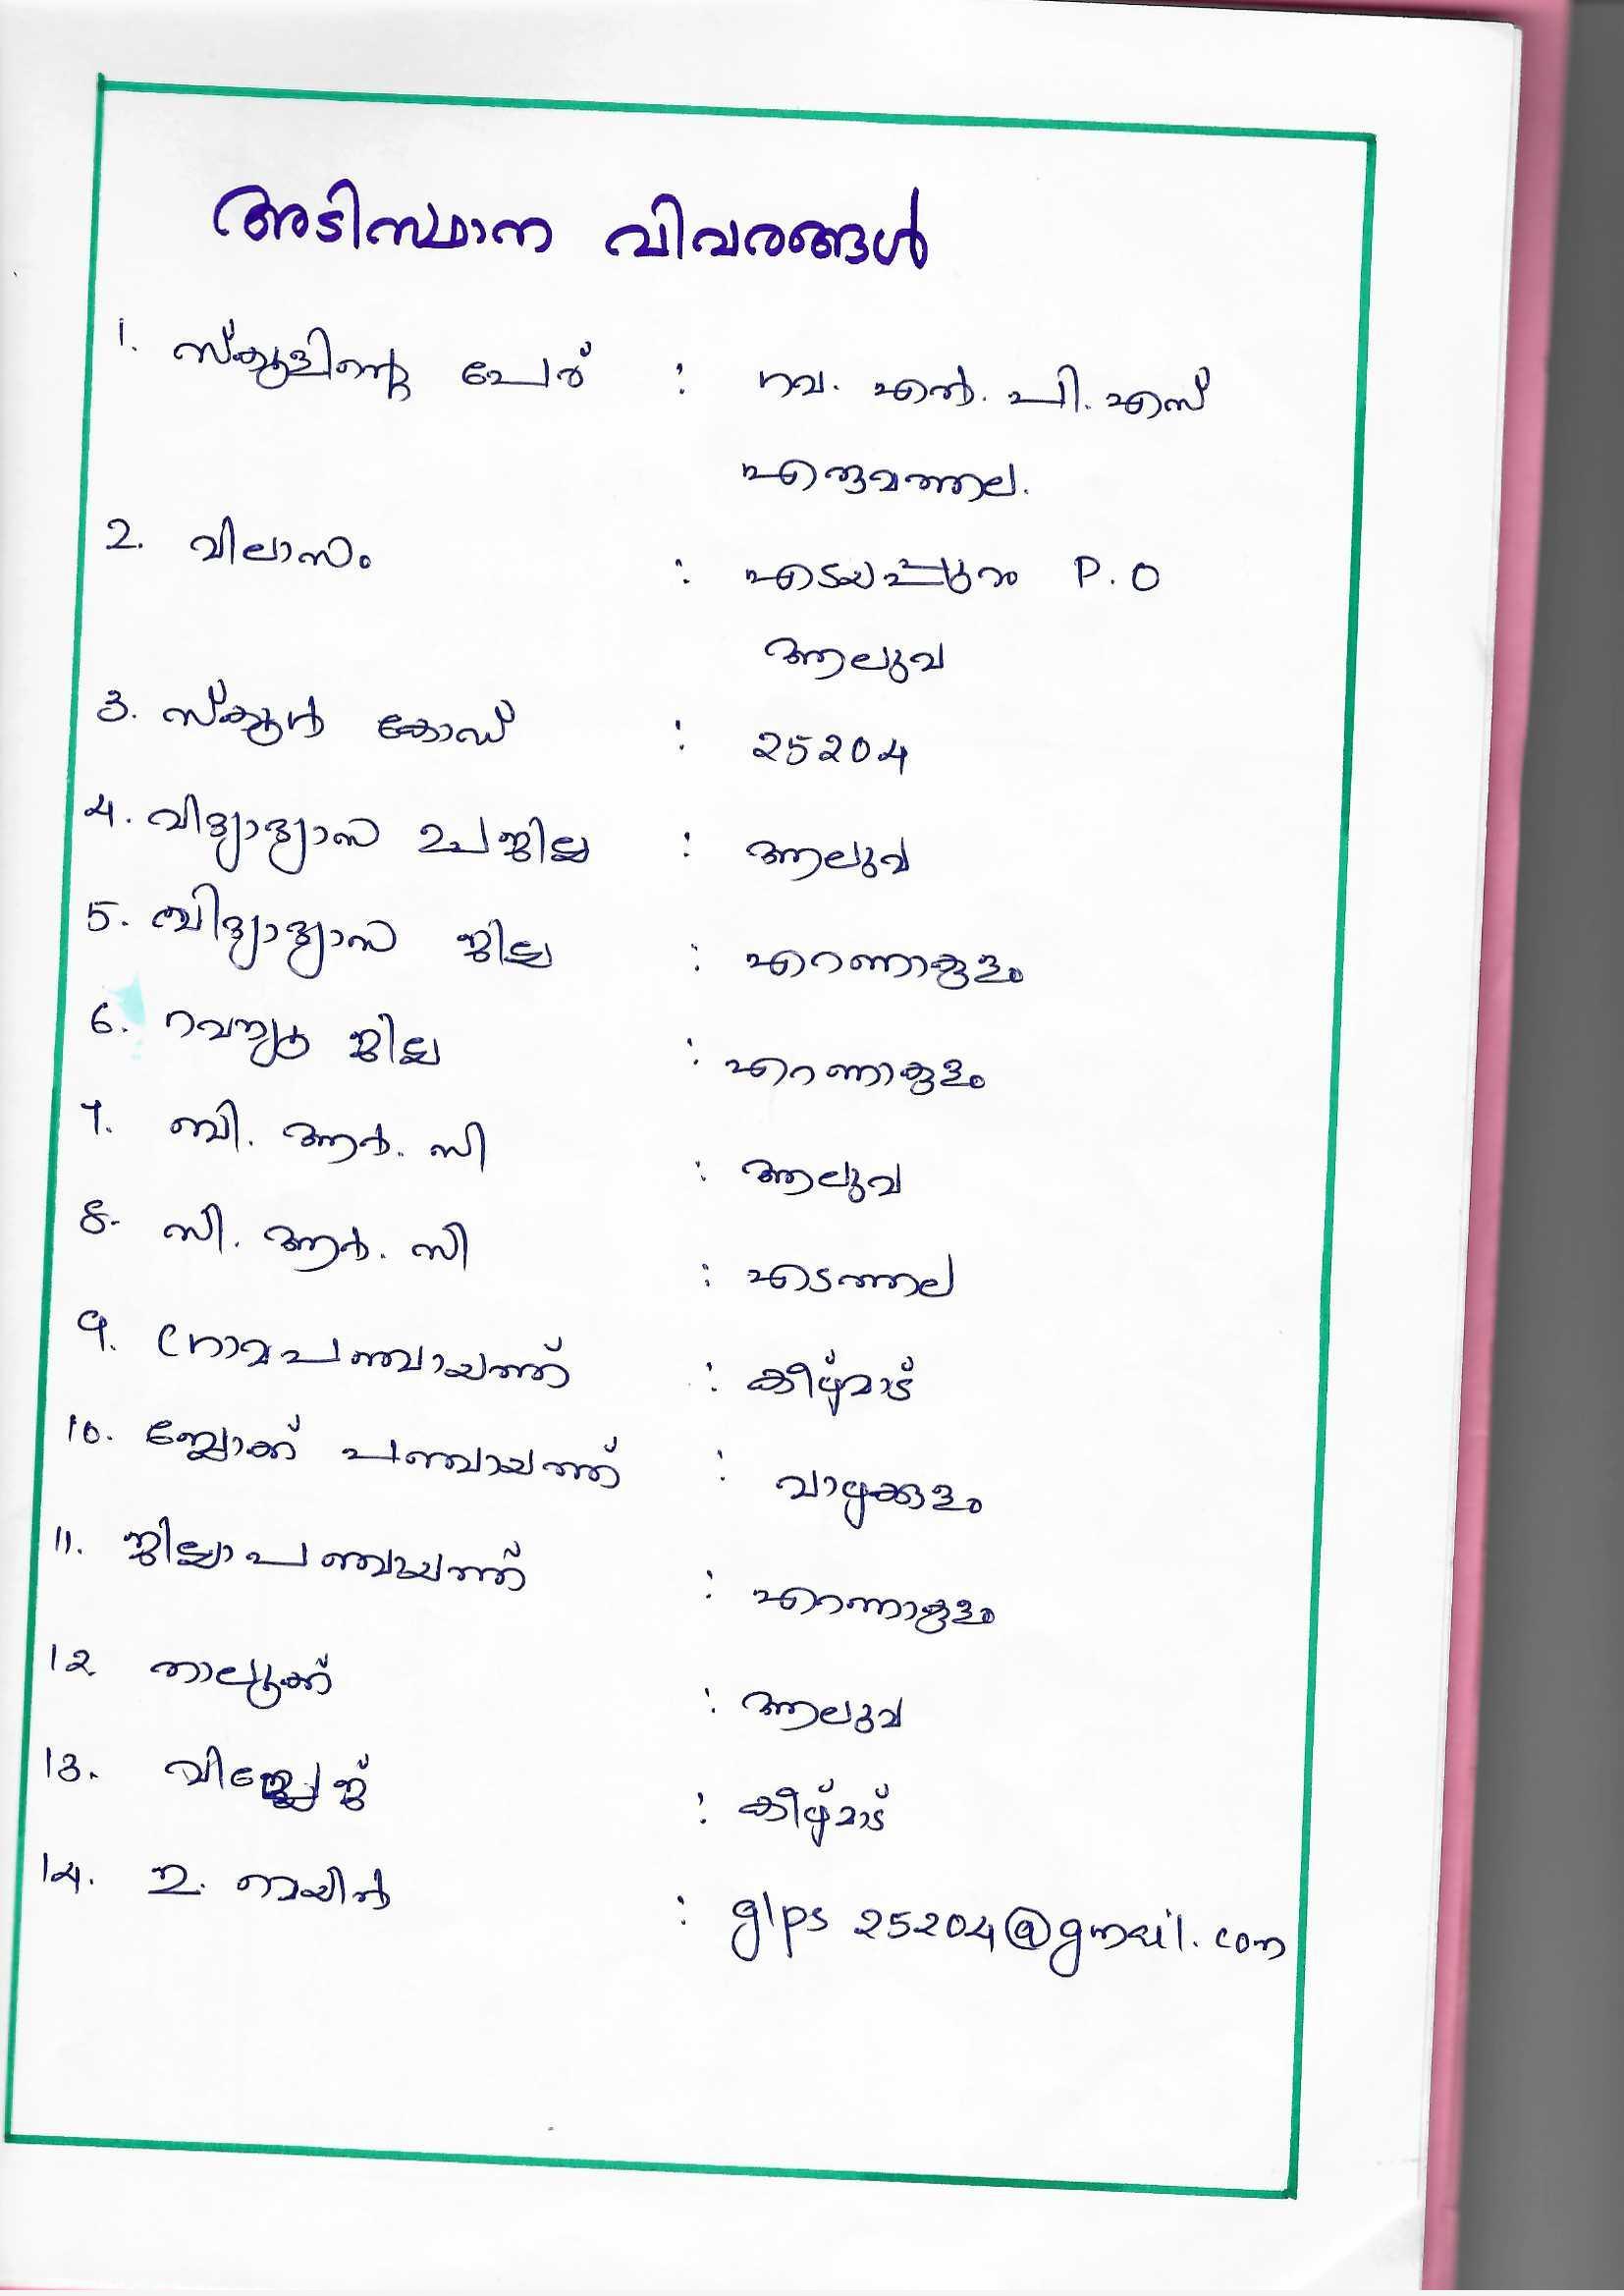 അടിസ്ഥാന വിവരങ്ങൾ
1. സ്കൂളിന്റെ പേര് : ഗവ. എൽ. പി. എസ്
എരുമത്തല.
2. വിലാസം : എടയപ്പുറം P.O
ആലുവ
3. സ്കൂൾ കോഡ് : 25204
4. വിദ്യാഭ്യാസ ഉപജില്ല : ആലുവ
5. വിദ്യാഭ്യാസ ജില്ല : എറണാകുളം
6. റവന്യൂ ജില്ല : എറണാകുളം
7. ബി. ആർ. സി : ആലുവ
8. സി. ആർ. സി : എടത്തല
9. ഗ്രാമപഞ്ചായത്ത് : കീഴ്മാട്
10. ബ്ലോക്ക് പഞ്ചായത്ത് : വാഴക്കുളം
11. ജില്ലാപഞ്ചായത്ത് : എറണാകുളം
12 താലൂക്ക് : ആലുവ
13. വില്ലേജ് : കീഴ്മാട്
14. ഇ. മെയിൽ : glps 25204@gmail.com